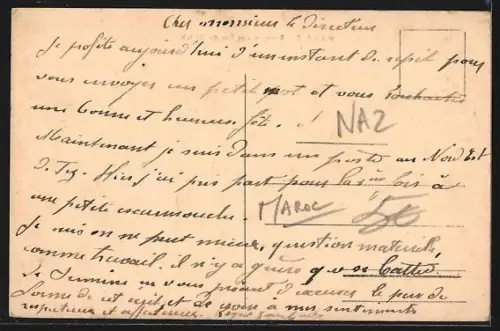 Cher monsieur le directeur
Je profite aujourd'hui d'un instant de répit pour
vous envoyer un petit mot et vous souhaiter
une bonne et heureuse fête.
NAZ
Maintenant je suis dans un poste au Nord Est
d. Fez. Hier j'ai pris part pour la 1ère fois à
une petite escarmouche.
MAROC
50
Je suis on ne peut mieux, question matériel,
comme travail. il n'y a guère que se battre.
Je termine en vous priant d'excuser le peu de
forme de cet écrit et de croire à mes sentiments
respectueux et affectueux.